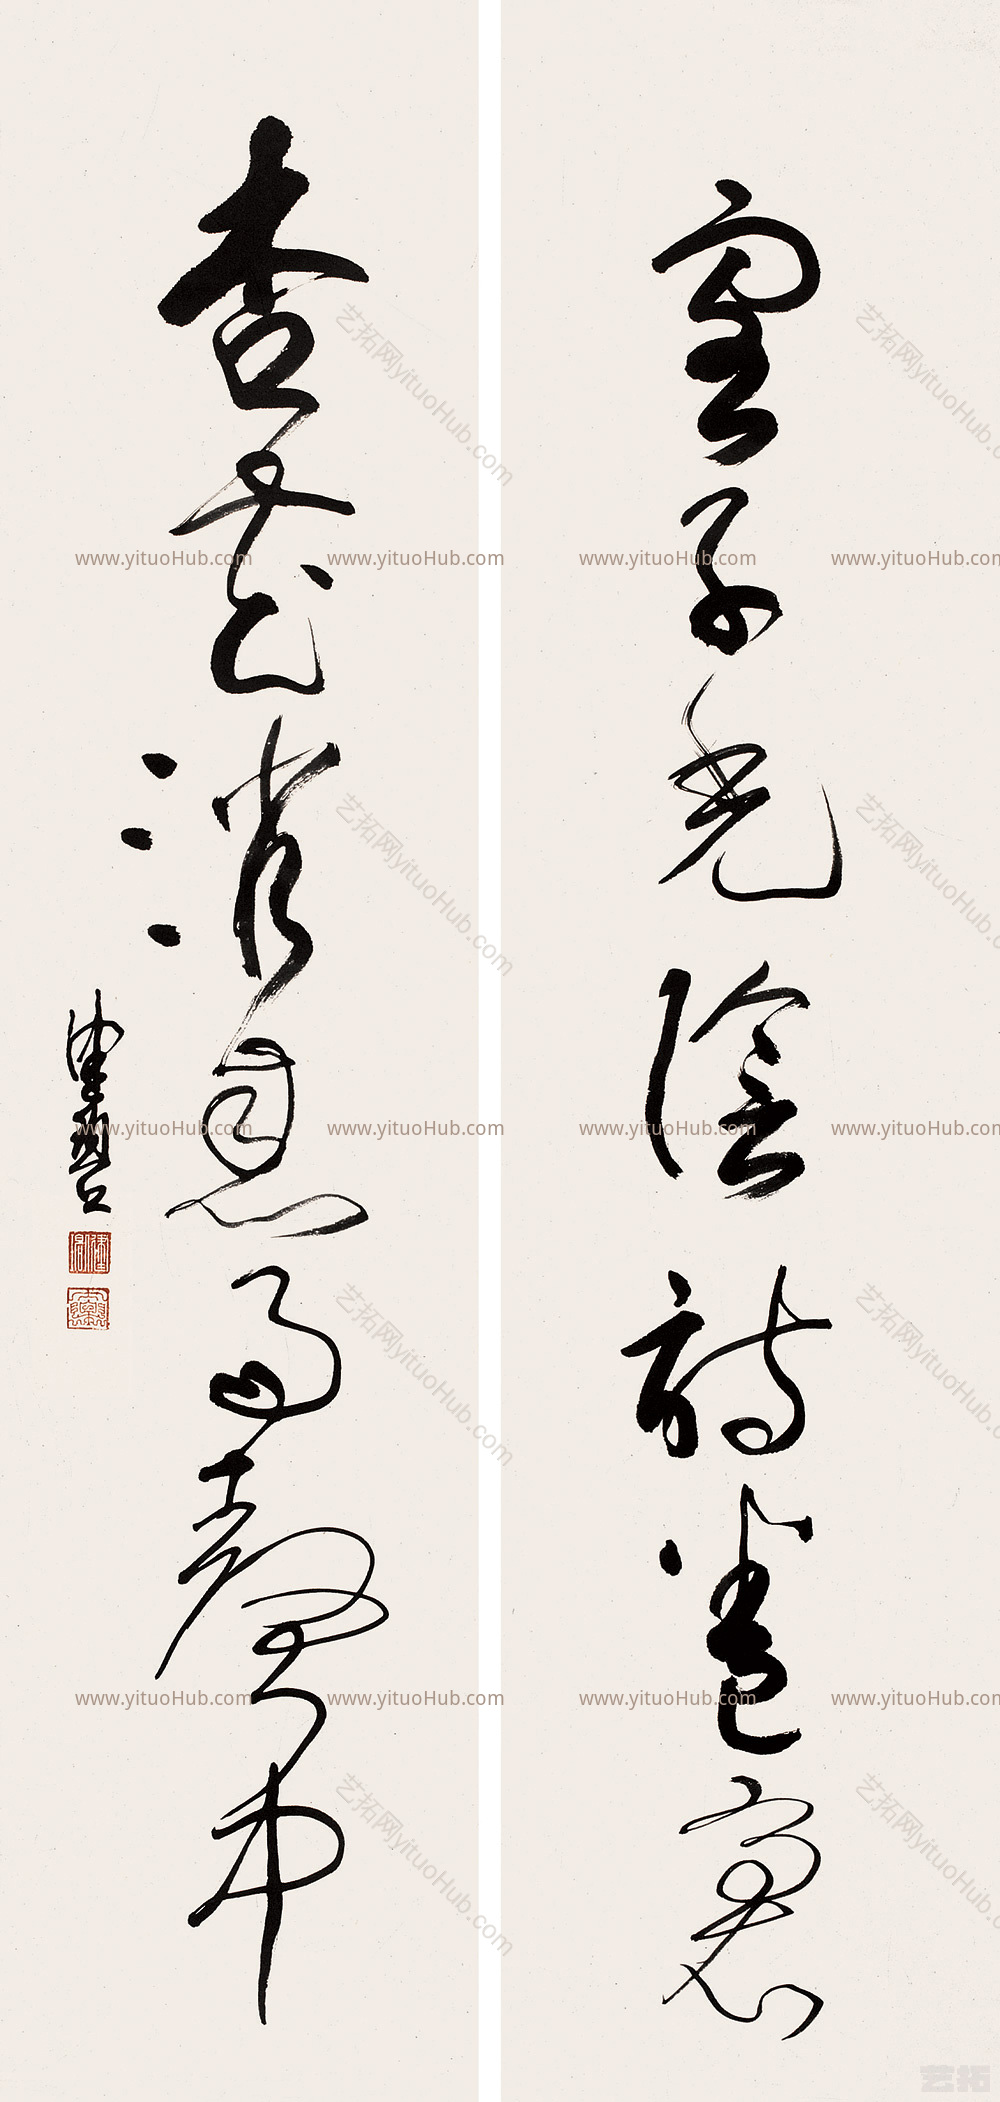 客子光陰詩卷裏
杏花消息雨聲中
艺拓网yituoHub.com
艺拓网yituoHub.com
www.yituoHub.com www.yituoHub.com www.yituoHub.com www.yituoHub.com
艺拓网yituoHub.com
艺拓网yituoHub.com
www.yituoHub.com www.yituoHub.com www.yituoHub.com www.yituoHub.com
艺拓网yituoHub.com
艺拓网yituoHub.com
www.yituoHub.com www.yituoHub.com www.yituoHub.com www.yituoHub.com
艺拓网yituoHub.com
艺拓网yituoHub.com
艺拓